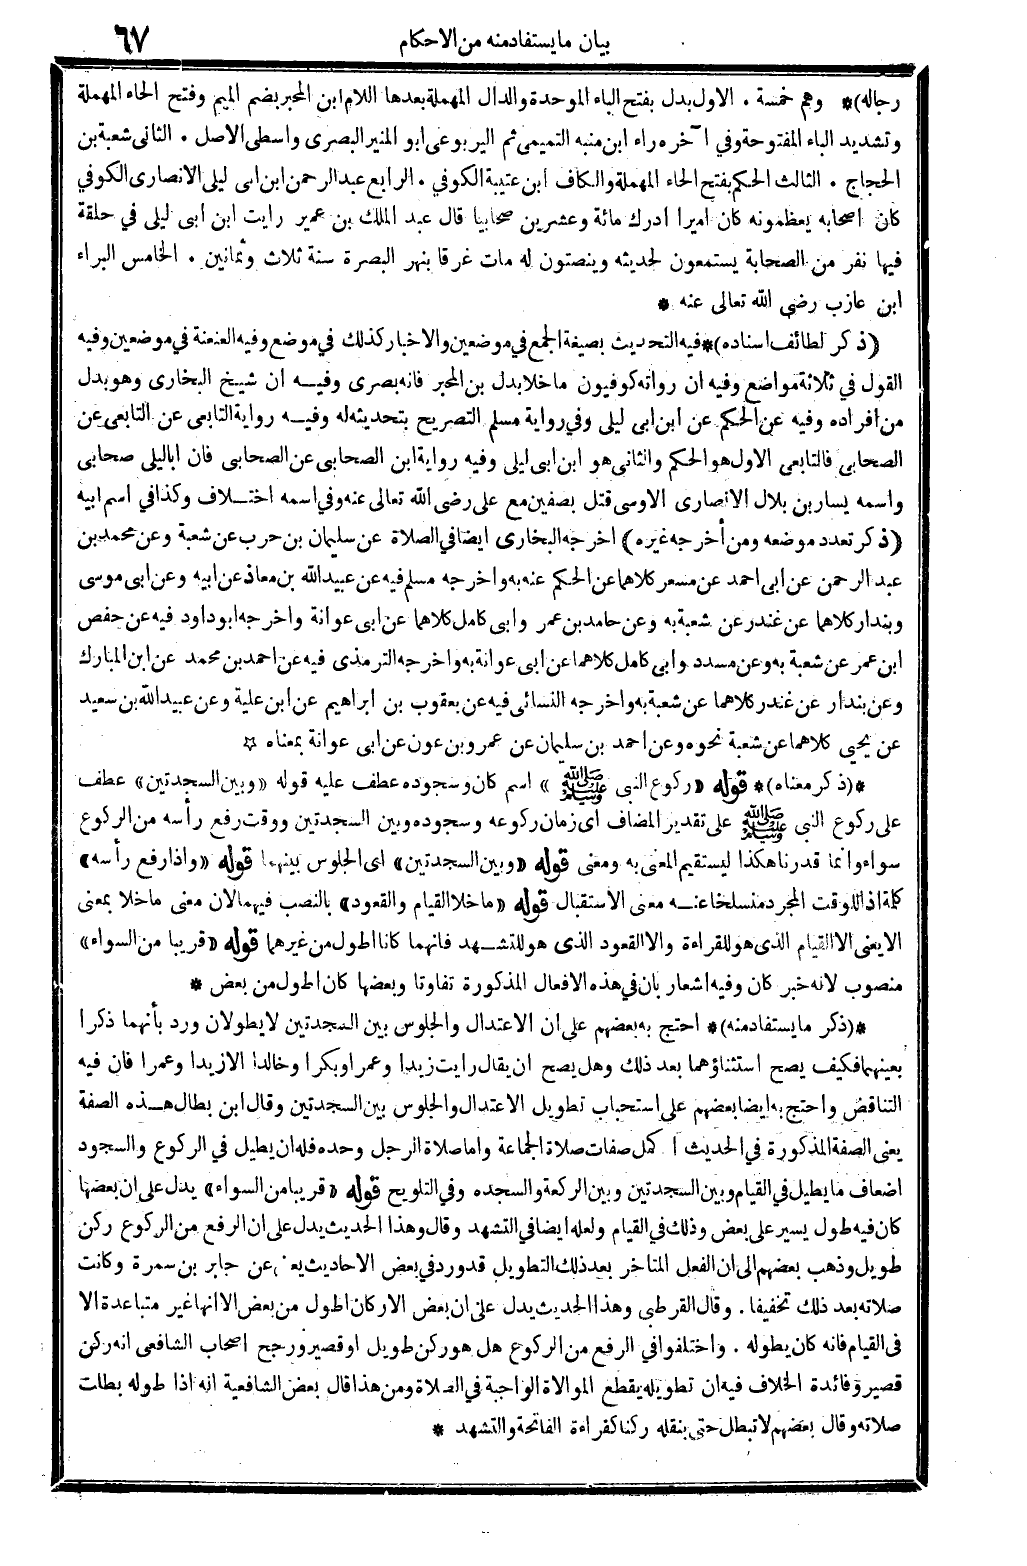 بيان مايستفادمنه من الاحكام
٦٧
رجاله)* وهم خمسة . الاول بدل بفتح الباء الموحدة والدال المهملة بعدها اللام ابن المحبر بضم الميم وفتح الحاء المهملة
وتشديد الباء المفتوحة وفي آخره راء ابن منبه التميمي ثم اليربوعى ابو المنير البصرى واسطى الاصل . الثانى شعبة بن
الحجاج . الثالث الحكم بفتح الحاء المهملة والكاف ابن عتيبة الكوفي . الرابع عبد الرحمن ابن ابى ليلى الانصارى الكوفي
كان اصحابه يعظمونه كان اميرا ادرك مائة وعشرين صحابيا قال عبد الملك بن عمير رايت ابن ابى ليلى في حلقة
فيها نفر من الصحابة يستمعون لحديثه وينصتون له مات غرقا بنهر البصرة سنة ثلاث وثمانين . الخامس البراء
ابن عازب رضي الله تعالى عنه *
(ذكر لطائف اسناده)* فيه التحديث بصيغة الجمع في موضعين والاخبار كذلك في موضع وفيه العنعنة في موضعين وفيه
القول في ثلاثة مواضع وفيه ان رواته كوفيون ماخلا بدل بن المحبر فانه بصرى وفيه ان شيخ البخارى وهو بدل
من افراده وفيه عن الحكم عن ابن ابى ليلى وفي رواية مسلم التصريح بتحديثه له وفيه رواية التابعى عن التابعى عن
الصحابى فالتابعى الاول هو الحكم والثانى هو ابن ابى ليلى وفيه رواية ابن الصحابى عن الصحابى فان اباليلى صحابى
واسمه يسار بن بلال الانصارى الاوسى قتل بصفين مع على رضى الله تعالى عنه وفي اسمه اختلاف وكذا في اسم ابيه
(ذكر تعدد موضعه ومن أخرجه غيره) اخرجه البخارى ايضا في الصلاة عن سليمان بن حرب عن شعبة وعن محمد بن
عبد الرحمن عن ابى احمد عن مسعر كلاهما عن الحكم عنه به واخرجه مسلم فيه عن عبيدالله بن معاذ عن ابيه وعن ابى موسى
وبندار كلاهما عن غندر عن شعبة به وعن حامد بن عمر وابى كامل كلاهما عن ابى عوانة واخرجه ابو داود فيه عن حفص
ابن عمر عن شعبة به وعن مسدد وابى كامل كلاهما عن ابى عوانة به واخرجه الترمذى فيه عن احمد بن محمد عن ابن المبارك
وعن بندار عن غندر كلاهما عن شعبة به واخرجه النسائى فيه عن يعقوب بن ابراهيم عن ابن علية وعن عبيدالله بن سعيد
عن يحيى كلاهما عن شعبة نحوه وعن احمد بن سليمان عن عمرو بن عون عن ابى عوانة بمعناه ☆
*(ذكر معناه)* قوله «ركوع النبى ﷺ» اسم كان وسجوده عطف عليه قوله «وبين السجدتين» عطف
على ركوع النبى ﷺ على تقدير المضاف اى زمان ركوعه وسجوده وبين السجدتين ووقت رفع رأسه من الركوع
سواء وانما قدرنا هكذا ليستقيم المعنى به ومعنى قوله «وبين السجدتين» اى الجلوس بينهما قوله «واذا رفع رأسه»
كلمة اذا للوقت المجرد منسلخا عنه معنى الاستقبال قوله «ماخلا القيام والقعود» بالنصب فيهما لان معنى ماخلا بمعنى
الا يعنى الا القيام الذى هو للقراءة والا القعود الذى هو للتشهد فانهما كانا اطول من غيرهما قوله «قريبا من السواء»
منصوب لانه خبر كان وفيه اشعار بان في هذه الافعال المذكورة تفاوتا وبعضها كان اطول من بعض *
*(ذكر مايستفادمنه)* احتج به بعضهم على ان الاعتدال والجلوس بين السجدتين لا يطولان ورد بأنهما ذكرا
بعينهما فكيف يصح استثناؤهما بعد ذلك وهل يصح ان يقال رايت زيدا وعمرا وبكرا وخالدا الا زيدا وعمرا فان فيه
التناقض واحتج به ايضا بعضهم على استحباب تطويل الاعتدال والجلوس بين السجدتين وقال ابن بطال هذه الصفة
يعنى الصفة المذكورة في الحديث اكمل صفات صلاة الجماعة واما صلاة الرجل وحده فله ان يطيل في الركوع والسجود
اضعاف ما يطيل في القيام وبين السجدتين وبين الركعة والسجده وفي التلويح قوله «قريبا من السواء» يدل على ان بعضها
كان فيه طول يسير على بعض وذلك في القيام ولعله ايضا في التشهد وقال وهذا الحديث يدل على ان الرفع من الركوع ركن
طويل وذهب بعضهم الى ان الفعل المتاخر بعد ذلك التطويل قد ورد في بعض الاحاديث يعنى عن جابر بن سمرة وكانت
صلاته بعد ذلك تخفيفا . وقال القرطبى وهذا الحديث يدل على ان بعض الاركان اطول من بعض الا انها غير متباعدة الا
فى القيام فانه كان يطوله . واختلفوا في الرفع من الركوع هل هو ركن طويل او قصير ورجح اصحاب الشافعى انه ركن
قصير وفائدة الخلاف فيه ان تطويله يقطع الموالاة الواجبة في الصلاة ومن هذا قال بعض الشافعية انه اذا طوله بطلت
صلاته وقال بعضهم لا تبطل حتى ينقله ركنا كقراءة الفاتحة والتشهد *